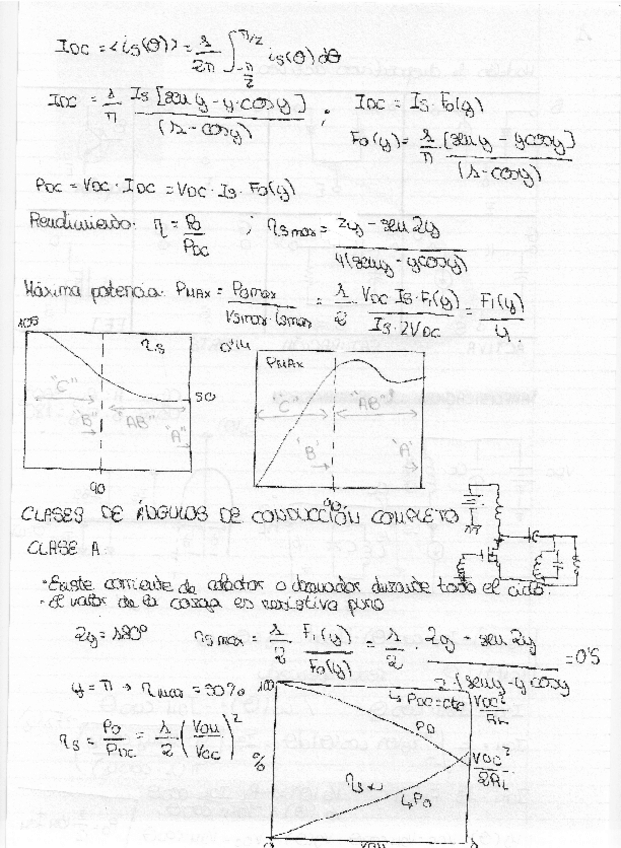 I_DC = <i_s(θ)> = 1/2π ∫_{-π/2}^{π/2} i_s(θ) dθ
I_DC = 1/π I_s [sen y - y·cos y] / (1 - cos y) ; I_DC = I_s · F_0(y)
F_0(y) = 1/π [sen y - y cos y] / (1 - cos y)
P_DC = V_DC · I_DC = V_DC · I_s · F_0(y)
Rendimiento: η = P_0/P_DC ; η_s max = 2y - sen 2y / 4(sen y - y cos y)
Máxima potencia: P_MAX = P_0max / V_smax · i_smax = 1/2 V_DC I_s · F_1(y) / I_s · 2V_DC = F_1(y)/4
100 η_s 50
"C" "B" "AB" "A"
90
0'14 P_MAX
"C" "B" "AB" "A"
90
CLASES DE ÁNGULOS DE CONDUCCIÓN COMPLETO
CLASE A
· Existe corriente de colector o drenador durante todo el ciclo.
· El valor de la carga es resistiva puro
2y = 180° η_s max = 1/2 · F_1(y)/F_0(y) = 1/2 · 2y - sen 2y / 2 (sen y - y cos y = 0'5
y = π → η_max = 50%
η_s = P_0/P_DC = 1/2 (V_OM/V_CC)²
%
100 ↳ P_DC = cte V_DC²/R_L
P_D
V_DC²/2R_L
η_s
↳ P_0
0 V_OM